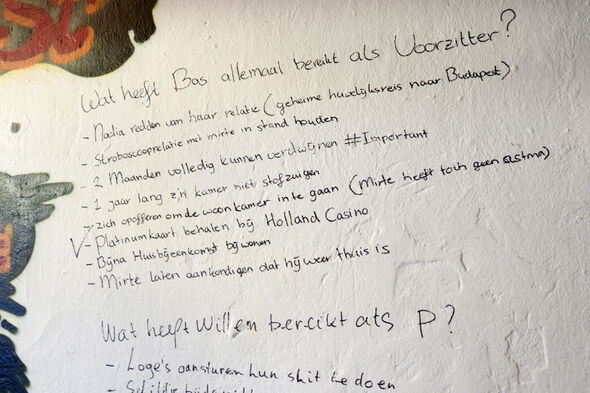 Wat heeft Bas allemaal bereikt als Voorzitter?
- Nadia redden van haar relatie (geheime huwelijksreis naar Budapest)
- Stroboscooprelatie met mirte in stand houden
- 2 Maanden volledig kunnen verdwijnen #Important
- 1 jaar lang z'n kamer niet stofzuigen
- zich opofferen om de woonkamer in te gaan (Mirte heeft toch geen astma)
V - Platinumkaart behalen bij Holland Casino
- Bijna Huisbijeenkomst bijwonen
- Mirte laten aankondigen dat hij weer thuis is
Wat heeft Willem bereikt als P?
- Loge's aansturen hun shit te doen